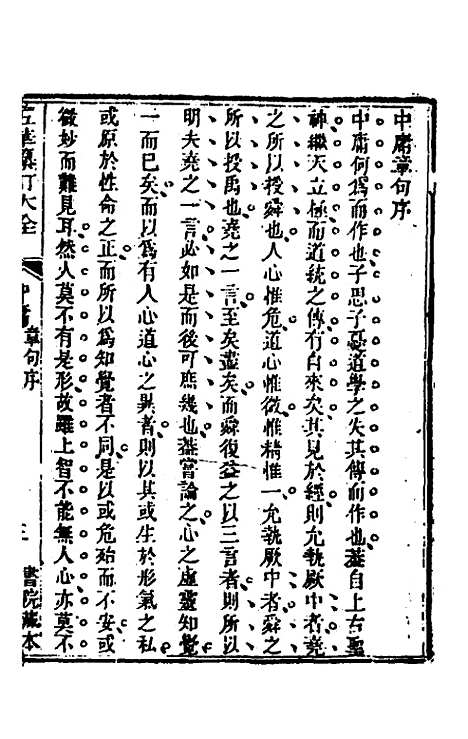 中庸章句序
中庸何爲而作也子思子憂道學之失其傳而作也蓋自上古聖
神繼天立極而道統之傳有自來矣其見於經則允執厥中者堯
之所以授舜也人心惟危道心惟微惟精惟一允執厥中者舜之
所以授禹也堯之一言至矣盡矣而舜復益之以三言者則所以
明夫堯之一言必如是而後可庶幾也蓋嘗論之心之虛靈知覺
一而已矣而以爲有人心道心之異者則以其或生於形氣之私
或原於性命之正而所以爲知覺者不同是以或危殆而不安或
微妙而難見耳然人莫不有是形故雖上智不能無人心亦莫不
五華纂訂大全
中庸章句序
書院藏本